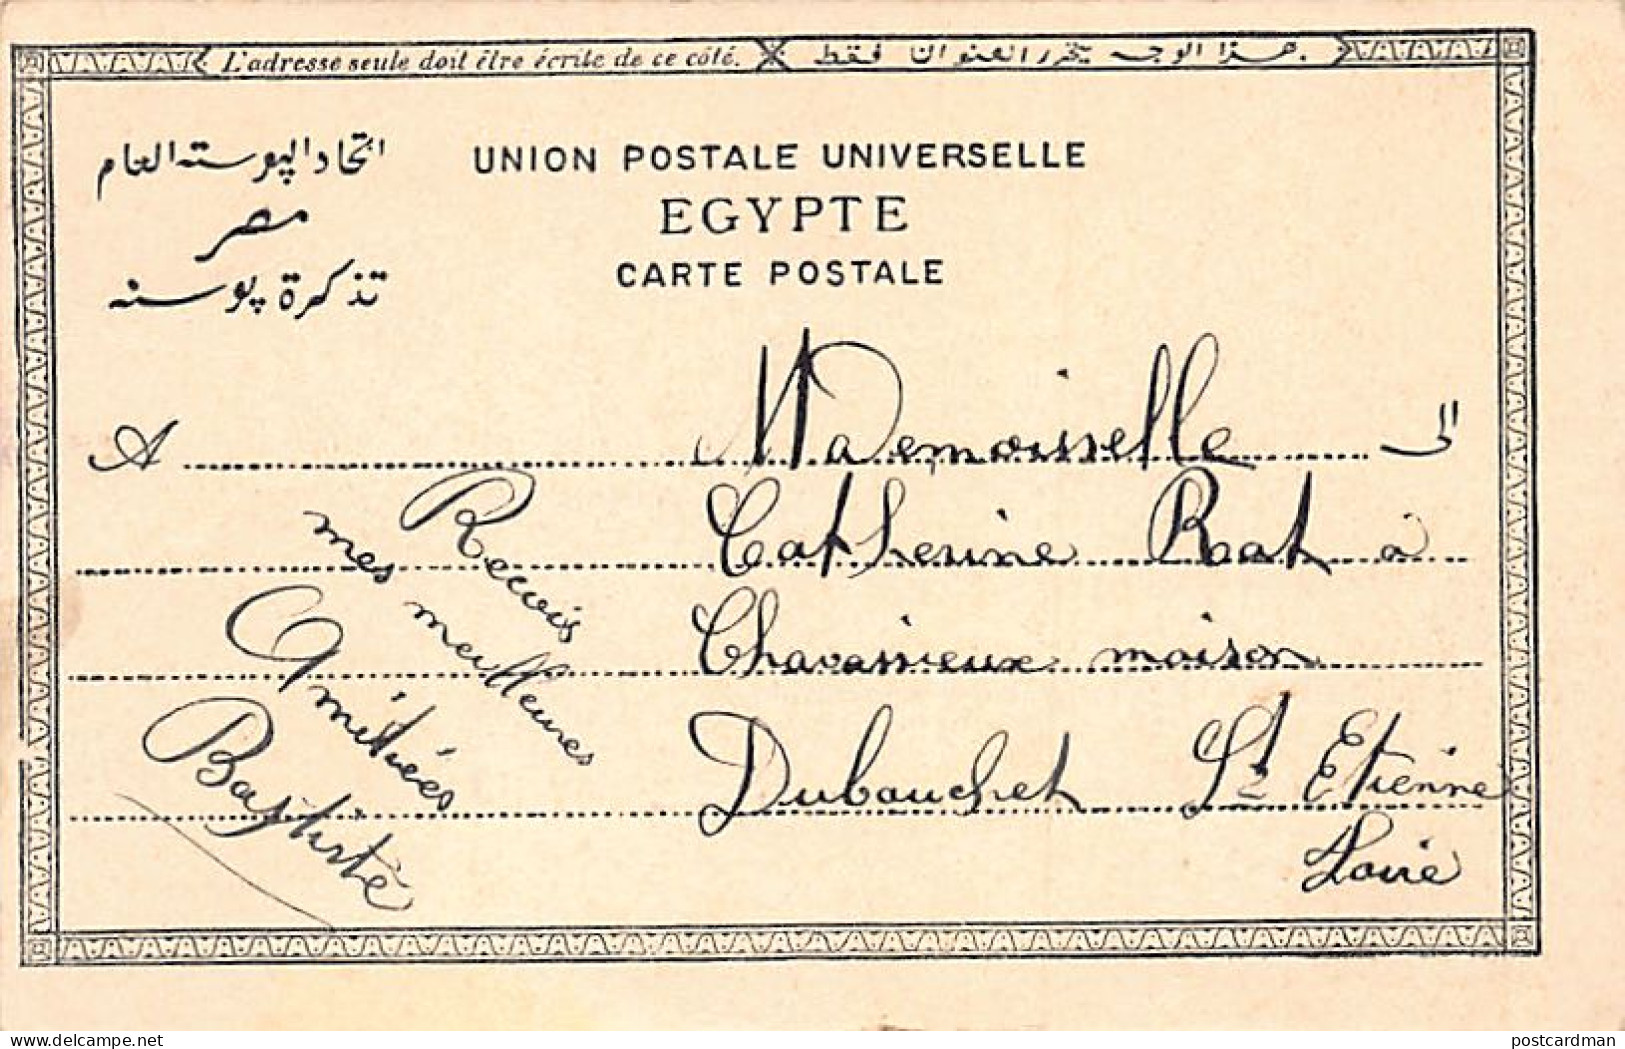 L'adresse seule doit être écrite de ce côté. هذا الوجه يحرر العنوان فقط.
اتحاد البوسته العام
UNION POSTALE UNIVERSELLE
مصر
EGYPTE
تذكرة بوسته
CARTE POSTALE
A Mademoisselle الى
Catherine Rat a
Chavassieux maison
Dubouchet St Etienne
Loire
Recois
mes meilleures
Amitiées
Baptiste
delcampe.net
postcardman